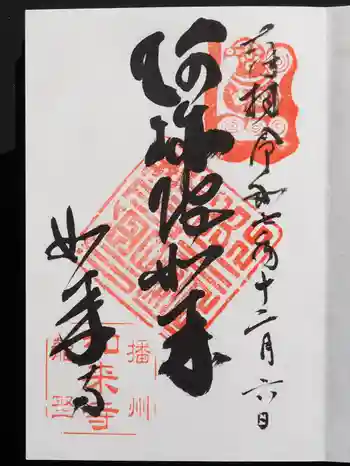 奉拝 令和七年十二月六日
阿弥陀如来
如来寺
播州
如来寺